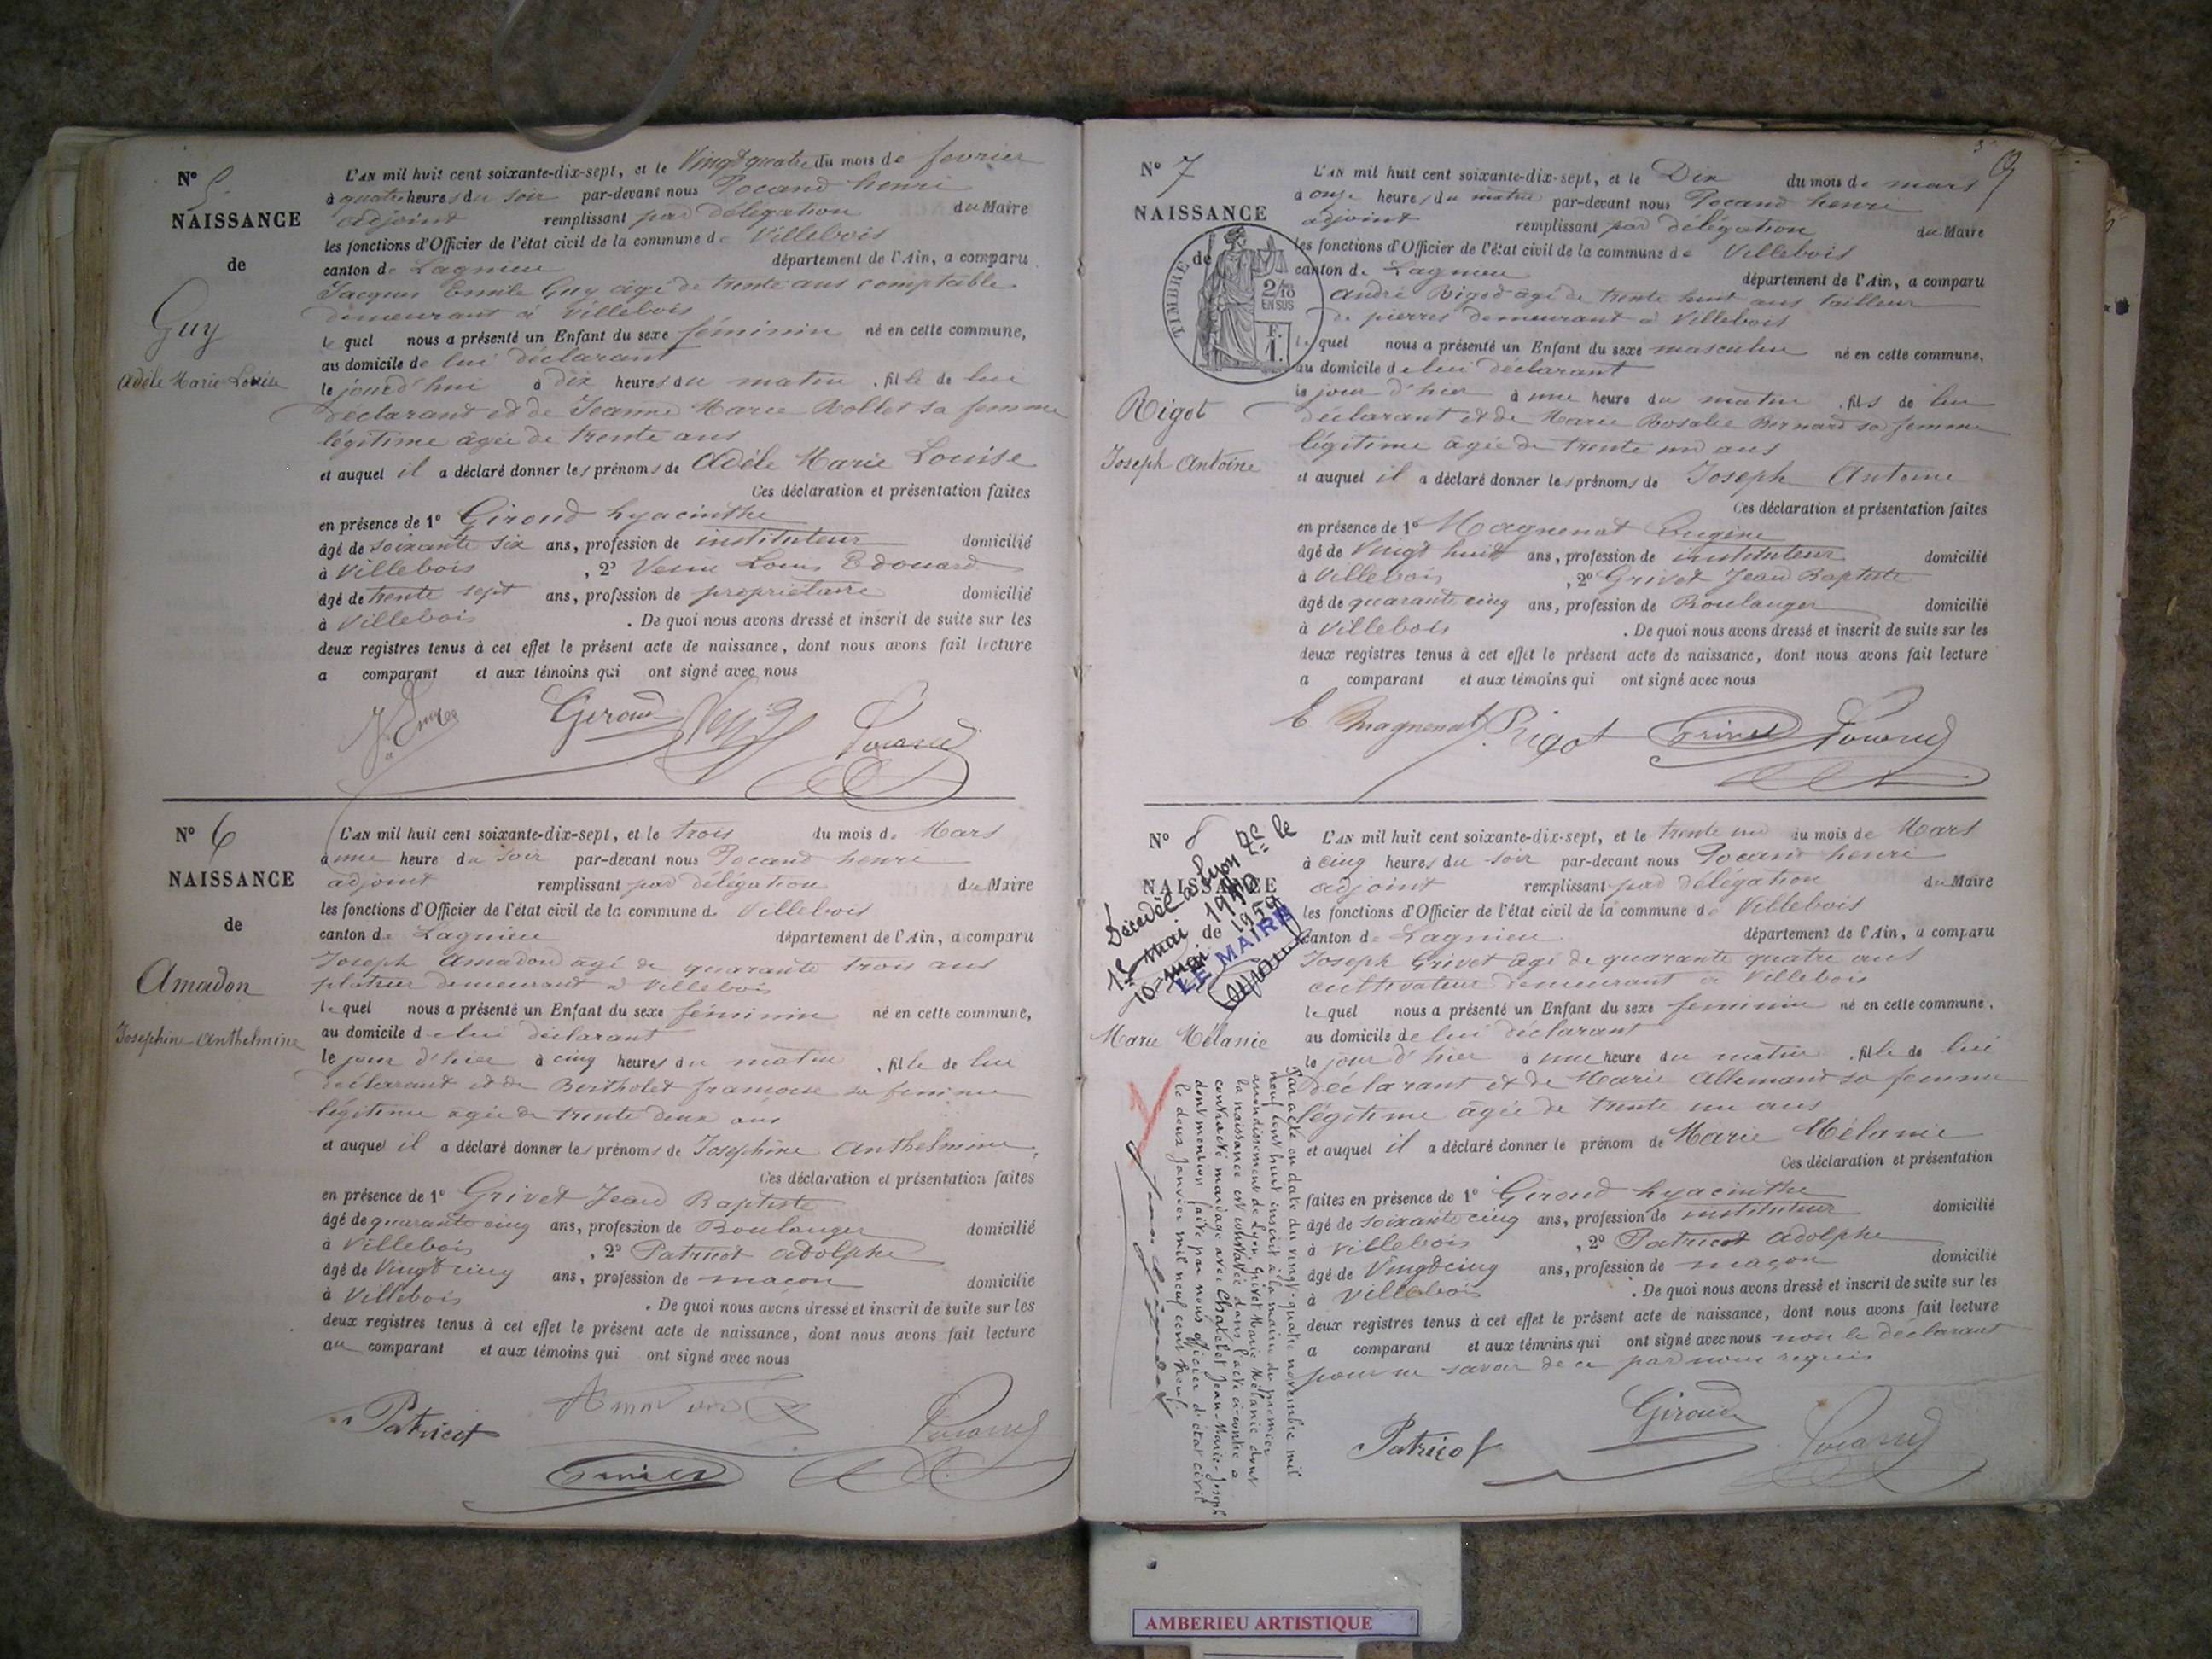 N° 5
NAISSANCE
de
Guy
Adèle Marie Louise
L'AN mil huit cent soixante-dix-sept, et le Vingt quatre du mois de fevrier
à quatre heures du soir par-devant nous Pocand henri
adjoint remplissant par délégation du Maire
les fonctions d'Officier de l'état civil de la commune de Villebois
canton de Lagnieu département de l'Ain, a comparu
Jacques Emile Guy âgé de trente ans comptable
demeurant à Villebois
lequel nous a présenté un Enfant du sexe féminin né en cette commune,
au domicile de lui déclarant
le jourd'hui à dix heures du matin, fille de lui
déclarant et de Jeanne Marie Rollet sa femme
légitime âgée de trente ans
et auquel il a déclaré donner les prénoms de Adèle Marie Louise
Ces déclaration et présentation faites
en présence de 1° Giroud hyacinthe
âgé de soixante six ans, profession de instituteur domicilié
à Villebois, 2° Louis Edouard
âgé de trente sept ans, profession de propriétaire domicilié
à Villebois. De quoi nous avons dressé et inscrit de suite sur les
deux registres tenus à cet effet le présent acte de naissance, dont nous avons fait lecture
a comparant et aux témoins qui ont signé avec nous
Giroud Pocand
N° 6
NAISSANCE
de
Amadon
Josephine Anthelmine
L'AN mil huit cent soixante-dix-sept, et le trois du mois de Mars
à une heure du soir par-devant nous Pocand henri
adjoint remplissant par délégation du Maire
les fonctions d'Officier de l'état civil de la commune de Villebois
canton de Lagnieu département de l'Ain, a comparu
Joseph Amadon âgé de quarante trois ans
plâtrier demeurant à Villebois
lequel nous a présenté un Enfant du sexe féminin né en cette commune,
au domicile de lui déclarant
le jour d'hier à cinq heures du matin, fille de lui
déclarant et de Bertholet françoise sa femme
légitime agée de trente deux ans
et auquel il a déclaré donner les prénoms de Josephine Anthelmine,
Ces déclaration et présentation faites
en présence de 1° Grivet Jean Baptiste
âgé de quarante cinq ans, profession de Boulanger domicilié
à Villebois, 2° Patricot adolphe
âgé de Vingt cinq ans, profession de maçon domicilié
à Villebois. De quoi nous avons dressé et inscrit de suite sur les
deux registres tenus à cet effet le présent acte de naissance, dont nous avons fait lecture
au comparant et aux témoins qui ont signé avec nous
Patricot Amadon Pocand
Grivet
9
N° 7
NAISSANCE
de
TIMBRE
2/10
EN SUS
F.
1.
Rigot
Joseph Antoine
L'AN mil huit cent soixante-dix-sept, et le Dix du mois de mars
à onze heures du matin par-devant nous Pocand henri
adjoint remplissant par délégation du Maire
les fonctions d'Officier de l'état civil de la commune de Villebois
canton de Lagnieu département de l'Ain, a comparu
André Rigot âgé de trente huit ans tailleur
de pierres demeurant à Villebois
lequel nous a présenté un Enfant du sexe masculin né en cette commune,
au domicile de lui déclarant
le jour d'hier à une heure du matin, fils de lui
déclarant et de Marie Rosalie Bernard sa femme
légitime âgée de trente un ans
et auquel il a déclaré donner les prénoms de Joseph Antoine
Ces déclaration et présentation faites
en présence de 1° Magnenat Eugène
âgé de Vingt huit ans, profession de instituteur domicilié
à Villebois, 2° Grivet Jean Baptiste
âgé de quarante cinq ans, profession de Boulanger domicilié
à Villebois. De quoi nous avons dressé et inscrit de suite sur les
deux registres tenus à cet effet le présent acte de naissance, dont nous avons fait lecture
a comparant et aux témoins qui ont signé avec nous
E Magnenat Rigot Grivet Pocand
N° 8
NAISSANCE
de
Décédée à Lyon 2e le
LE MAIRE
Marie Mélanie
Par acte en date du vingt-quatre novembre mil
neuf cent huit inscrit à la mairie du premier
arrondissement de Lyon, Grivet Marie Mélanie dont
la naissance est constatée dans l'acte ci-contre a
contracté mariage avec Chatelet Jean-Marie-Joseph
dont mention faite par nous officier d'état civil
le deux janvier mil neuf cent neuf.
L'AN mil huit cent soixante-dix-sept, et le trente un du mois de Mars
à cinq heures du soir par-devant nous Pocand henri
adjoint remplissant par délégation du Maire
les fonctions d'Officier de l'état civil de la commune de Villebois
canton de Lagnieu département de l'Ain, a comparu
Joseph Grivet âgé de quarante quatre ans
cultivateur demeurant à Villebois
lequel nous a présenté un Enfant du sexe feminin né en cette commune,
au domicile de lui déclarant
le jour d'hier à une heure du matin, fille de lui
déclarant et de Marie Allemand sa femme
légitime âgée de trente un ans
et auquel il a déclaré donner le prénom de Marie Mélanie
Ces déclaration et présentation
faites en présence de 1° Giroud hyacinthe
âgé de soixante cinq ans, profession de instituteur domicilié
à Villebois, 2° Patricot adolphe
âgé de Vingt cinq ans, profession de maçon domicilié
à Villebois. De quoi nous avons dressé et inscrit de suite sur les
deux registres tenus à cet effet le présent acte de naissance, dont nous avons fait lecture
a comparant et aux témoins qui ont signé avec nous non le déclarant
pour ne savoir de ce par nous requis
Patricot Giroud Pocand
AMBERIEU ARTISTIQUE